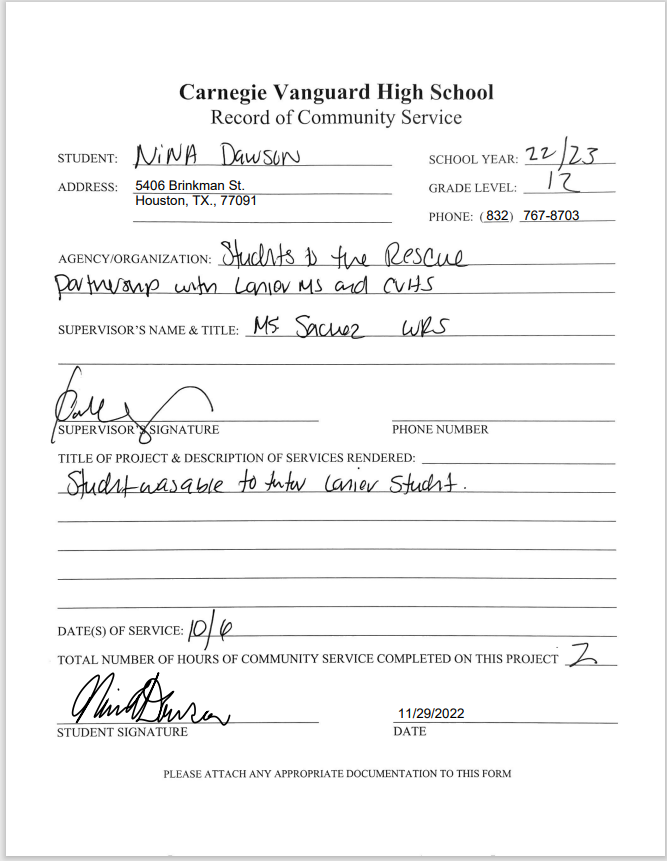 Carnegie Vanguard High School
Record of Community Service
STUDENT: NiNA Dawson SCHOOL YEAR: 22/23
ADDRESS: 5406 Brinkman St. GRADE LEVEL: 12
Houston, TX., 77091
PHONE: (832) 767-8703
AGENCY/ORGANIZATION: Studnts to the Rescue
partnership with Lanier MS and CVHS
SUPERVISOR'S NAME & TITLE: Ms
SUPERVISOR'S SIGNATURE PHONE NUMBER
TITLE OF PROJECT & DESCRIPTION OF SERVICES RENDERED:
Studnt was able to tutor Lanier Studnt.
DATE(S) OF SERVICE: 10/6
TOTAL NUMBER OF HOURS OF COMMUNITY SERVICE COMPLETED ON THIS PROJECT 2
Nina Dawson 11/29/2022
STUDENT SIGNATURE DATE
PLEASE ATTACH ANY APPROPRIATE DOCUMENTATION TO THIS FORM